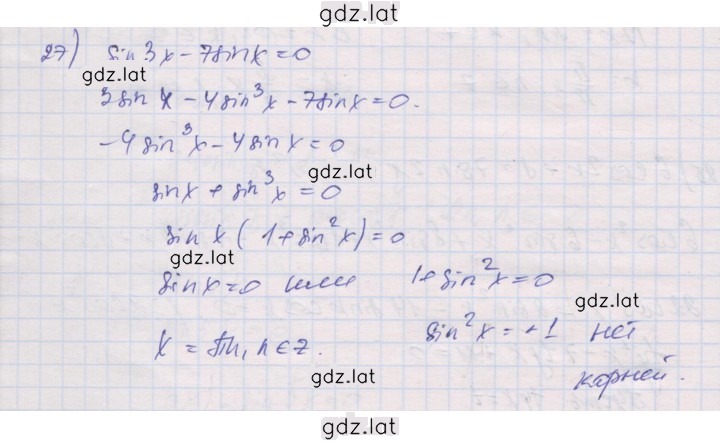 gdz.lat
27) sin3x - 7sinx = 0
gdz.lat
3sinx - 4sin³x - 7sinx = 0.
-4sin³x - 4sinx = 0
gdz.lat
sinx + sin³x = 0
sinx(1+sin²x) = 0
gdz.lat
sinx=0 или 1+sin²x=0
gdz.lat
x = πn, n∈z. sin²x = -1 нет
корней.
gdz.lat
gdz.lat